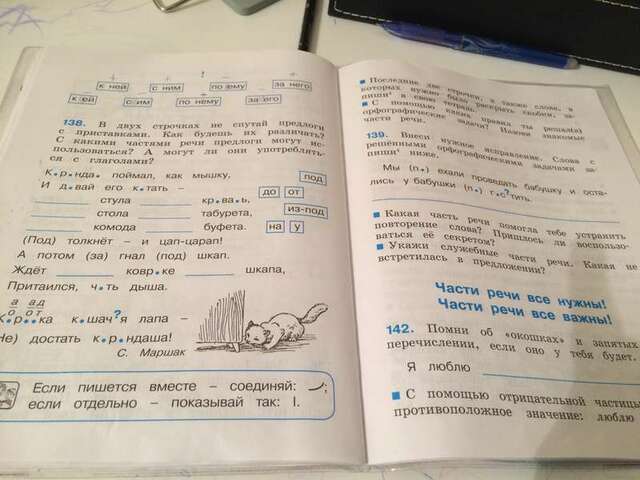 к ней с ним по ему за него
к ей с им по нему за его
138. В двух строчках не спутай предлоги
с приставками. Как будешь их различать?
С какими частями речи предлоги могут ис-
пользоваться? А могут ли они употреблять-
ся с глаголами?
К•р•нда• поймал, как мышку, под
И д•вай его к•тать – до от
стула кр•ва•ь,
стола табурета, из-под
комода буфета. на у
(Под) толкнёт – и цап-царап!
А потом (за) гнал (под) шкап.
Ждёт ковр•ке шкапа,
Притаился, ч•ть дыша.
а о а о д т
К•р••ка к•шач?я лапа –
Не) достать к•р•ндаша!
С. Маршак
Если пишется вместе – соединяй:
если отдельно – показывай так: I.
Последние две строчки, а также слова, в
которых нужно было раскрыть скобки, за-
пиши¹ в свою тетрадь.
С помощью каких правил ты решал(а)
орфографические задачи? Назови знакомые
части речи.
139. Внеси нужное исправление. Слова с
решёнными орфографическими задачами за-
пиши¹ ниже.
Мы (п•) ехали проведать бабушку и оста-
лись у бабушки (п•) г•с?тить.
Какая часть речи помогла тебе устранить
повторение слова? Пришлось ли воспользо-
ваться её секретом?
Укажи служебные части речи. Какая не
встретилась в предложении?
Части речи все нужны!
Части речи все важны!
142. Помни об «окошках» и запятых
перечислении, если оно у тебя будет.
Я люблю
С помощью отрицательной частицы
противоположное значение: люблю